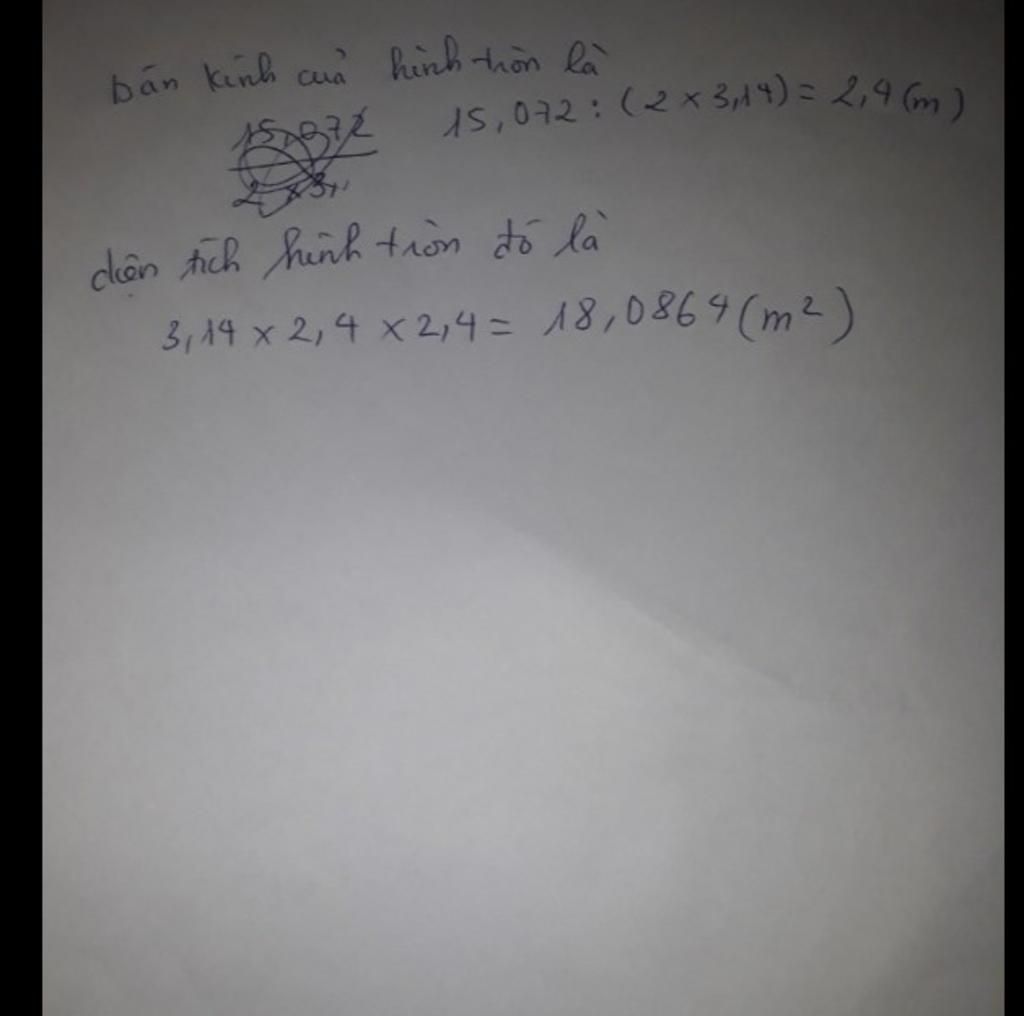 bán kính của hình tròn là
15,072 : (2 x 3,14) = 2,4 (m)
diện tích hình tròn đó là
3,14 x 2,4 x 2,4 = 18,0864 (m²)